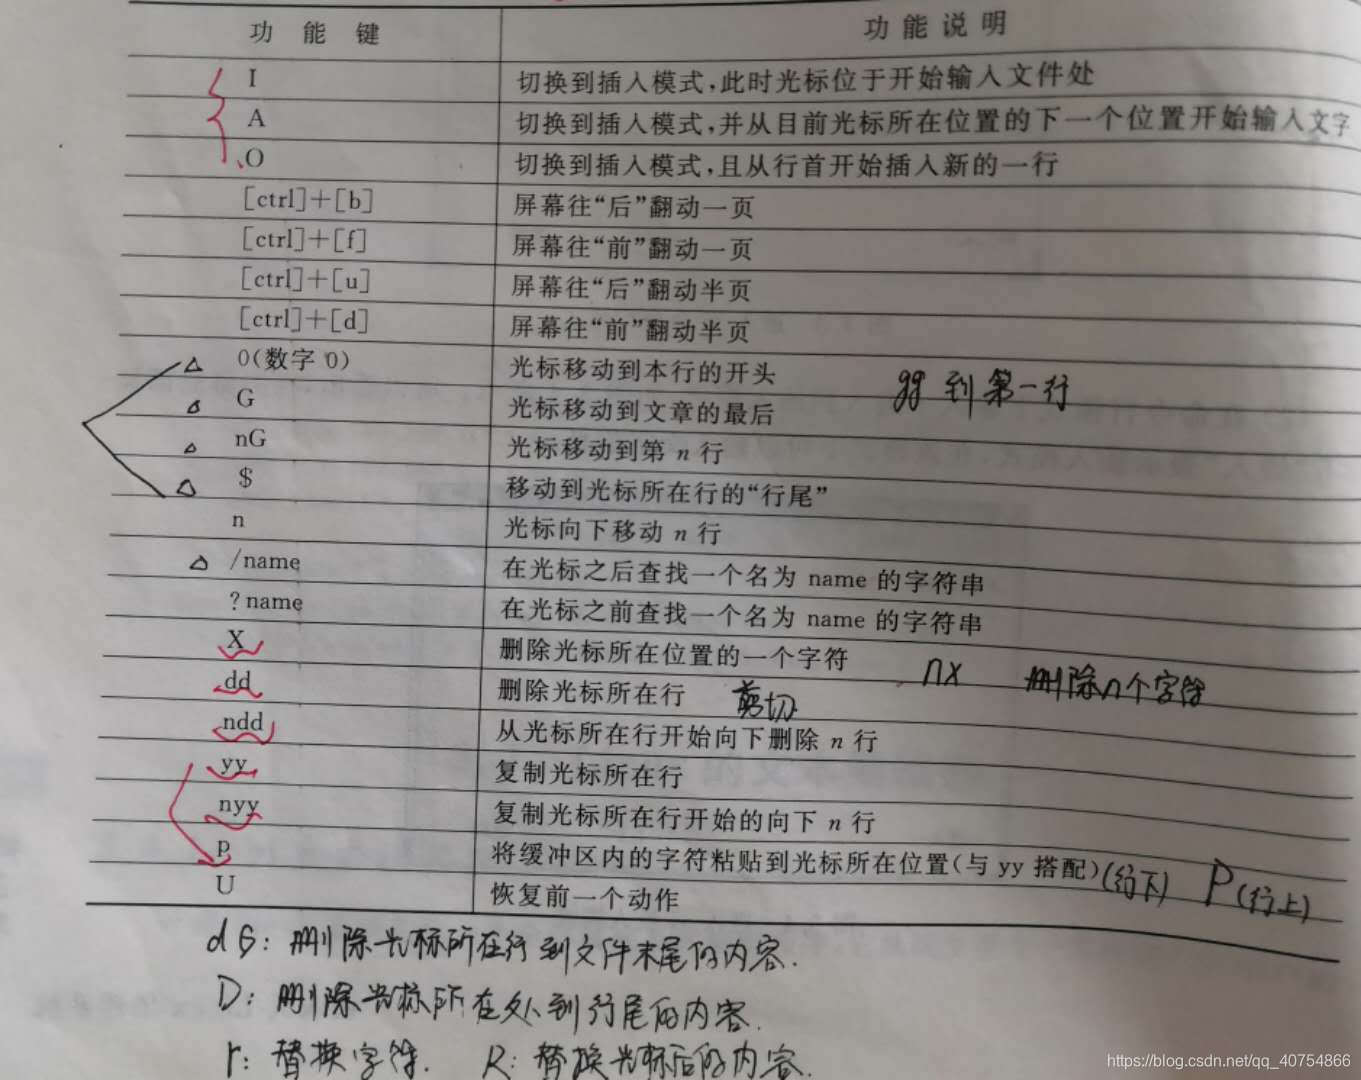 功 能 键 功 能 说 明
I 切换到插入模式,此时光标位于开始输入文件处
A 切换到插入模式,并从目前光标所在位置的下一个位置开始输入文字
O 切换到插入模式,且从行首开始插入新的一行
[ctrl]+[b] 屏幕往“后”翻动一页
[ctrl]+[f] 屏幕往“前”翻动一页
[ctrl]+[u] 屏幕往“后”翻动半页
[ctrl]+[d] 屏幕往“前”翻动半页
0(数字 0) 光标移动到本行的开头
gg 到第一行
G 光标移动到文章的最后
nG 光标移动到第 n 行
$ 移动到光标所在行的“行尾”
n 光标向下移动 n 行
/name 在光标之后查找一个名为 name 的字符串
?name 在光标之前查找一个名为 name 的字符串
X 删除光标所在位置的一个字符 nx 删除n个字符
dd 删除光标所在行 剪切
ndd 从光标所在行开始向下删除 n 行
yy 复制光标所在行
nyy 复制光标所在行开始的向下 n 行
p 将缓冲区内的字符粘贴到光标所在位置(与 yy 搭配)(行下) P(行上)
U 恢复前一个动作
dG: 删除光标所在行到文件末尾的内容.
D: 删除光标所在处到行尾的内容.
r: 替换字符. R: 替换光标后的内容.
https://blog.csdn.net/qq_40754866